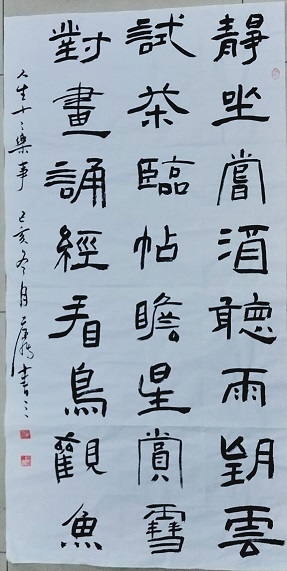 靜坐嘗酒聽雨望雲
試茶臨帖瞻星賞雪
對畫誦經看鳥觀魚
人生十二樂事 己亥冬月 書